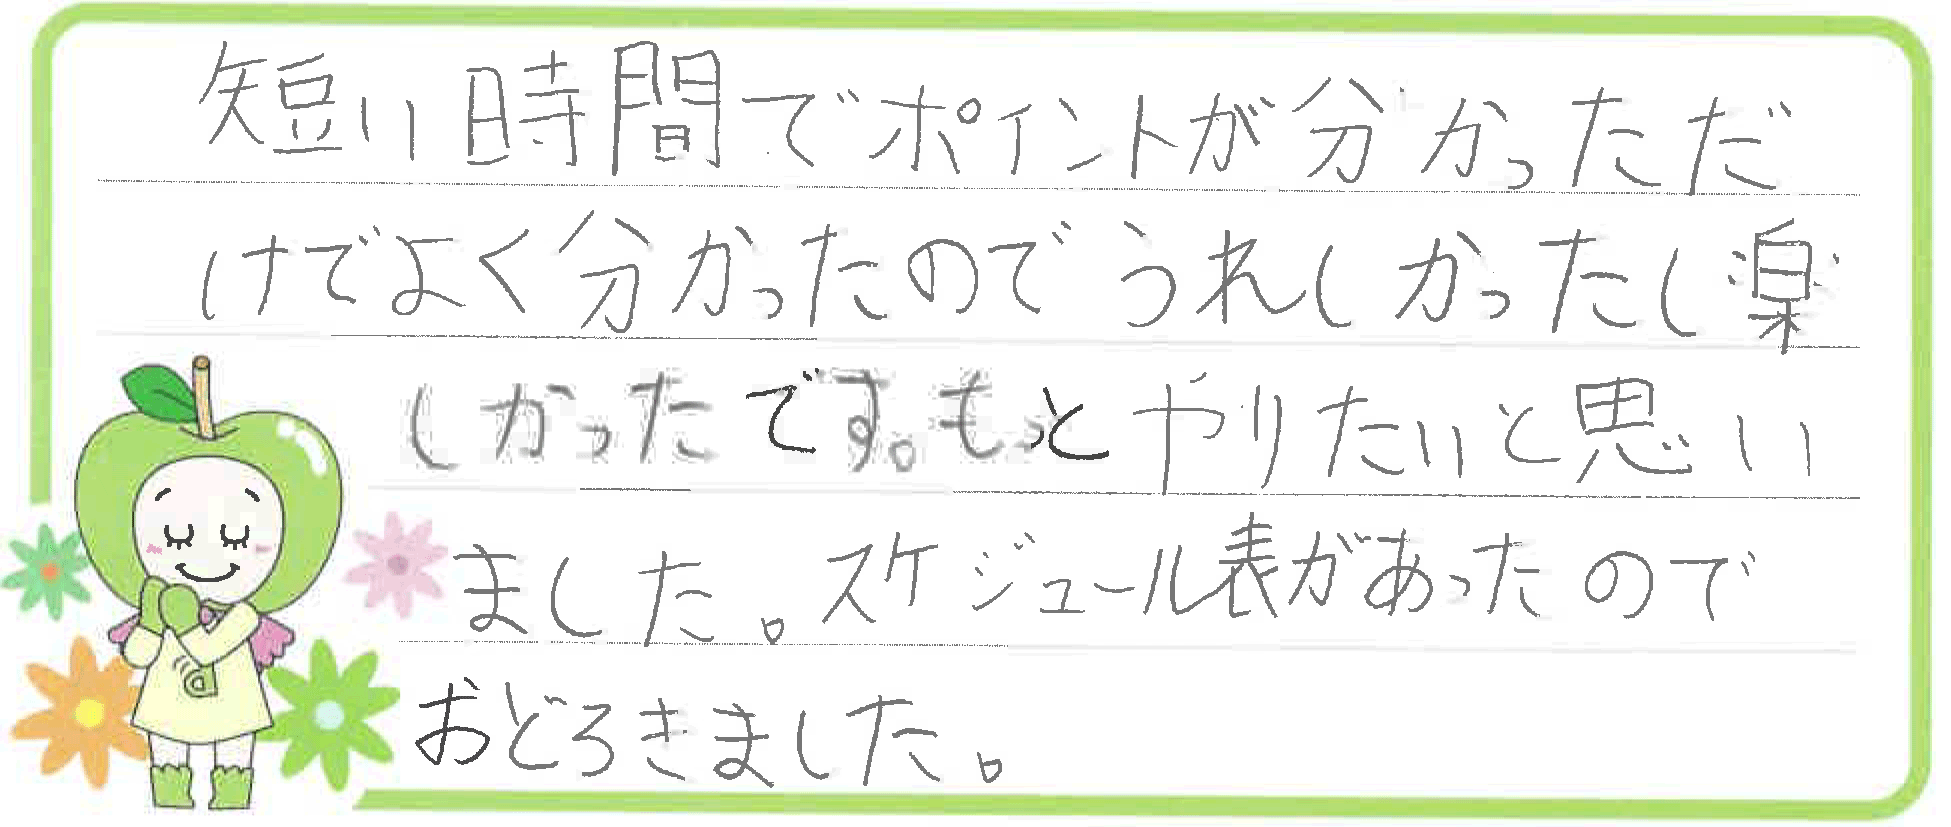 短い時間でポイントが分かっただ
けでよく分かったのでうれしかったし楽
しかったです。もっとやりたいと思い
ました。スケジュール表があったので
おどろきました。